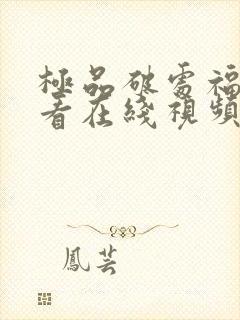 極品破處福
看在綫視頻
鳳芸